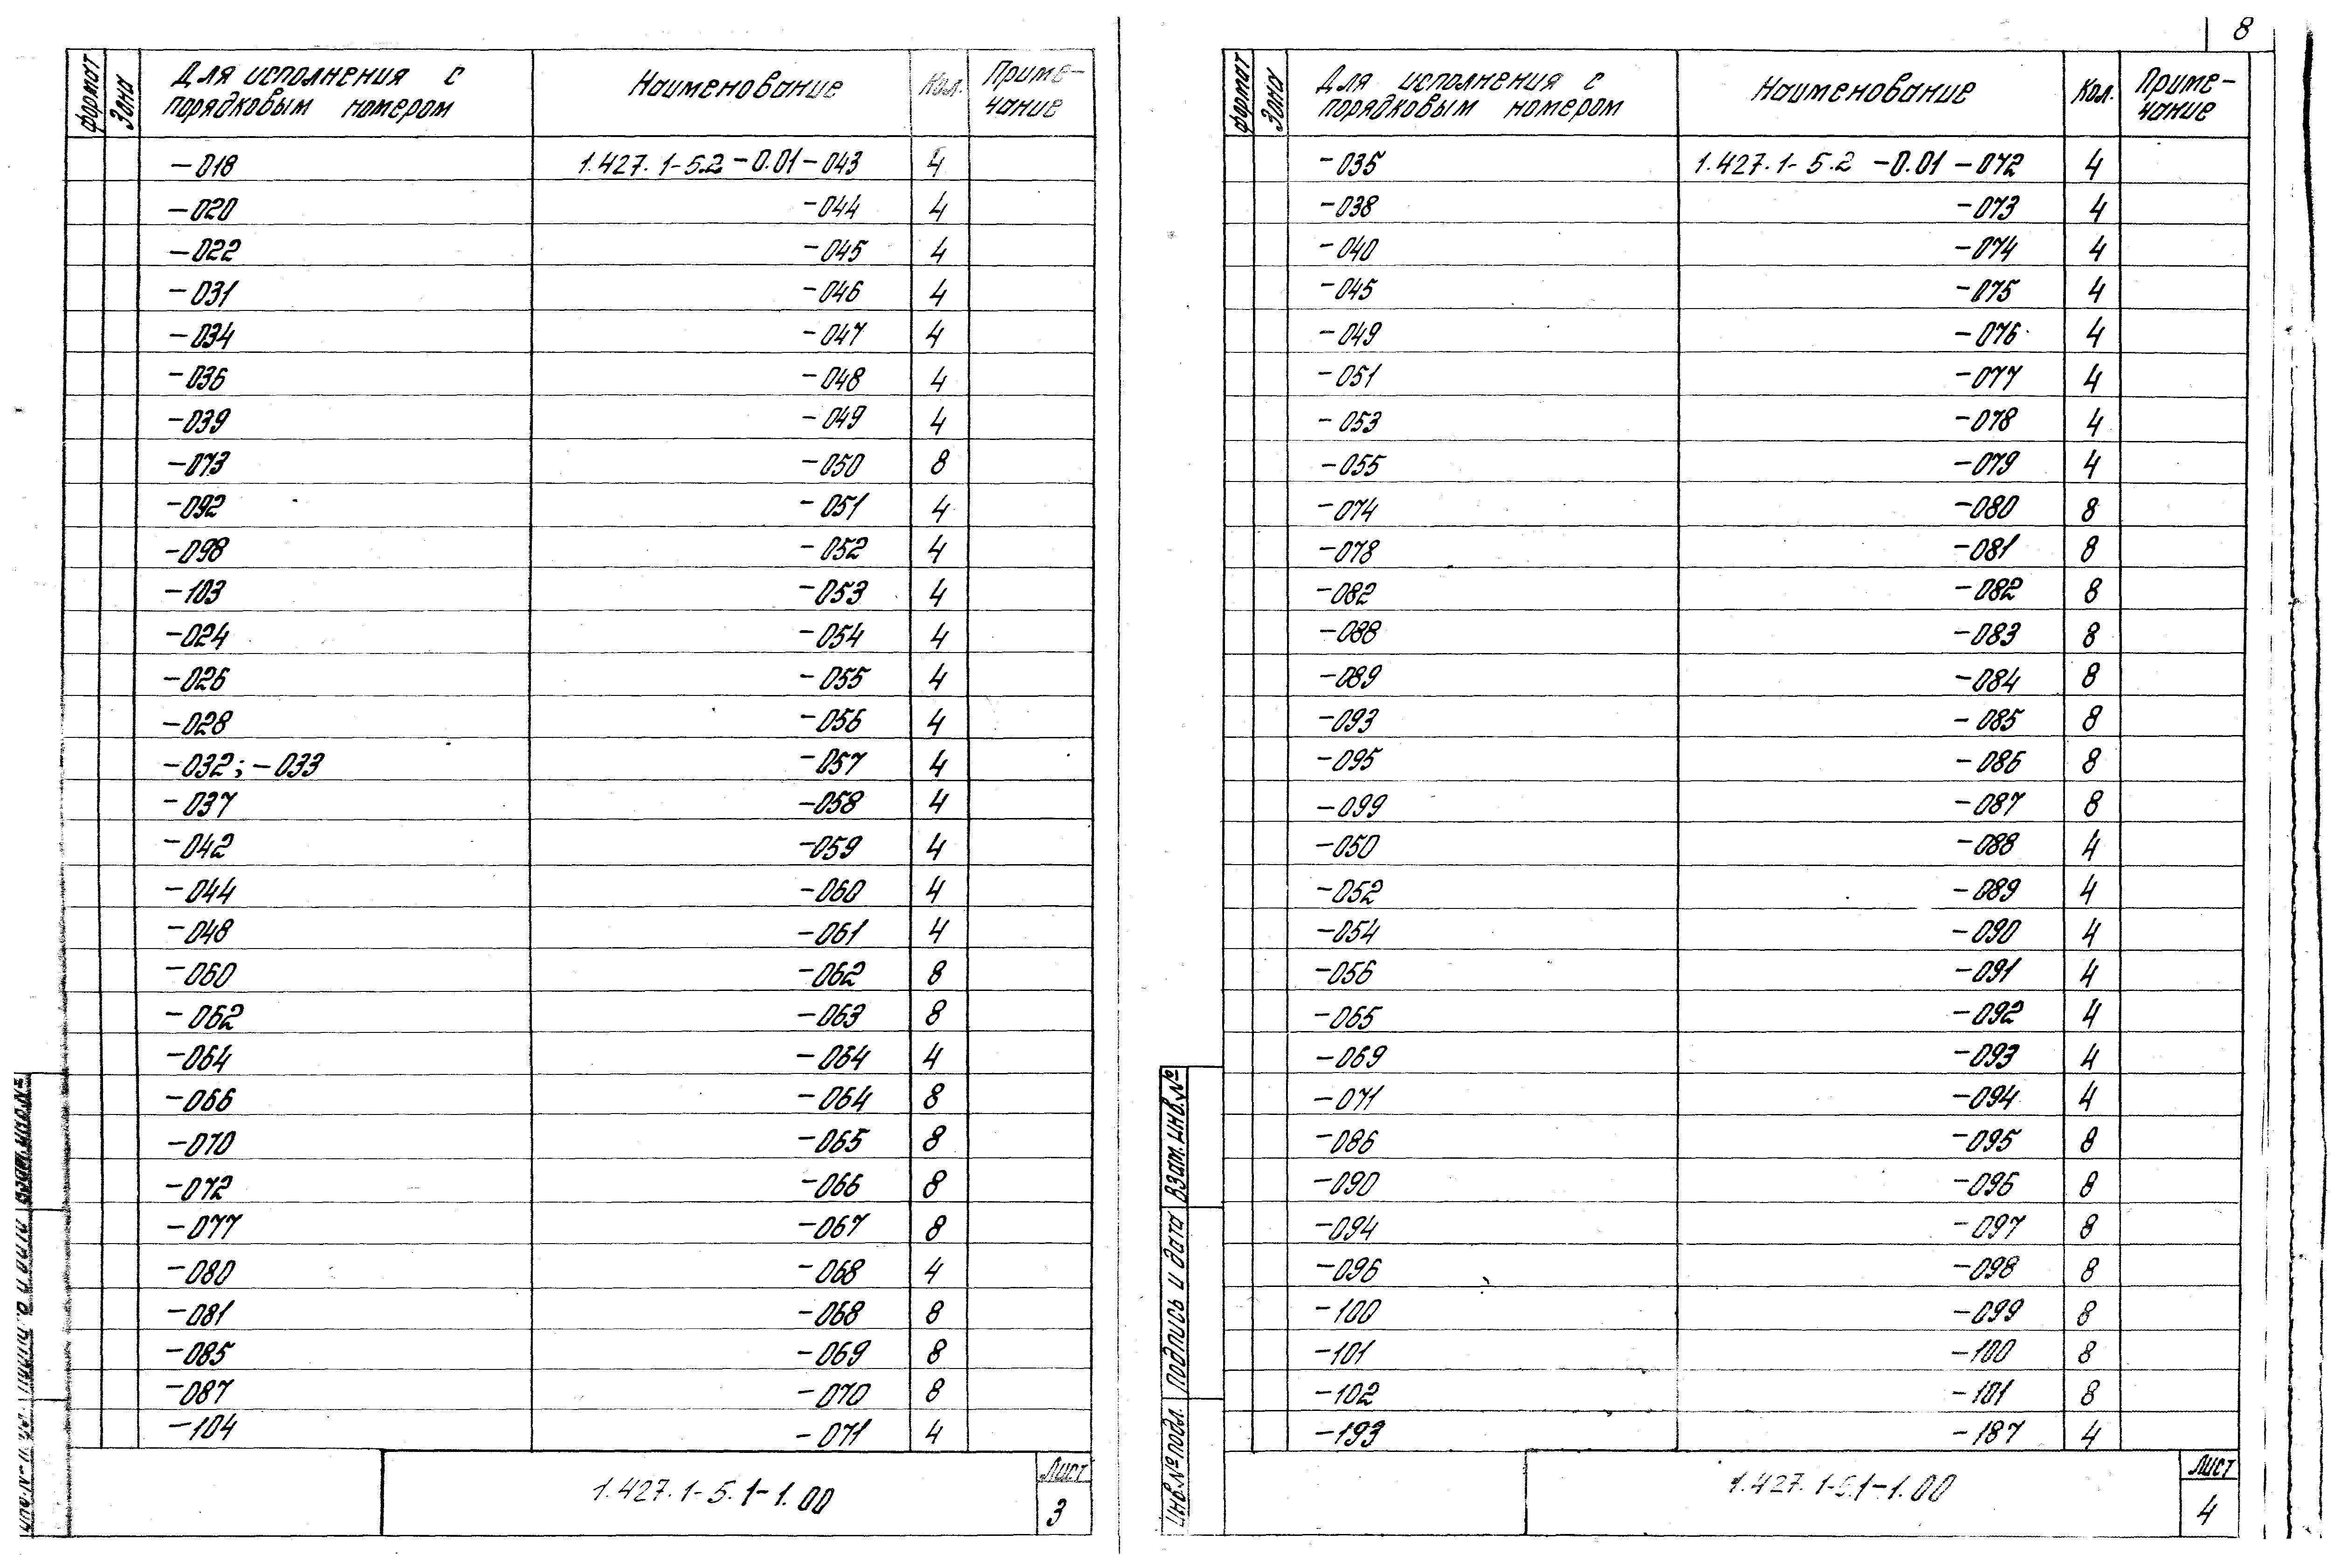 8
формат Зона Для исполнения с порядковым номером Наименование Кол. Приме-чание
-018 1.427.1-5.2-0.01-043 4
-020 -044 4
-022 -045 4
-031 -046 4
-034 -047 4
-036 -048 4
-039 -049 4
-073 -050 8
-092 -051 4
-098 -052 4
-103 -053 4
-024 -054 4
-026 -055 4
-028 -056 4
-032; -033 -057 4
-037 -058 4
-042 -059 4
-044 -060 4
-048 -061 4
-060 -062 8
-062 -063 8
-064 -064 4
-066 -064 8
-070 -065 8
-072 -066 8
-077 -067 8
-080 -068 4
-081 -068 8
-085 -069 8
-087 -070 8
-104 -071 4
1.427.1-5.1-1.00
Лист
3
формат Зона Для исполнения с порядковым номером Наименование Кол. Приме-чание
-035 1.427.1-5.2-0.01-072 4
-038 -073 4
-040 -074 4
-045 -075 4
-049 -076 4
-051 -077 4
-053 -078 4
-055 -079 4
-074 -080 8
-078 -081 8
-082 -082 8
-088 -083 8
-089 -084 8
-093 -085 8
-095 -086 8
-099 -087 8
-050 -088 4
-052 -089 4
-054 -090 4
-056 -091 4
-065 -092 4
-069 -093 4
-071 -094 4
-086 -095 8
-090 -096 8
-094 -097 8
-096 -098 8
-100 -099 8
-101 -100 8
-102 -101 8
-193 -187 4
Инв.№ подл. Подпись и дата Взам.инв.№
1.427.1-5.1-1.00
Лист
4